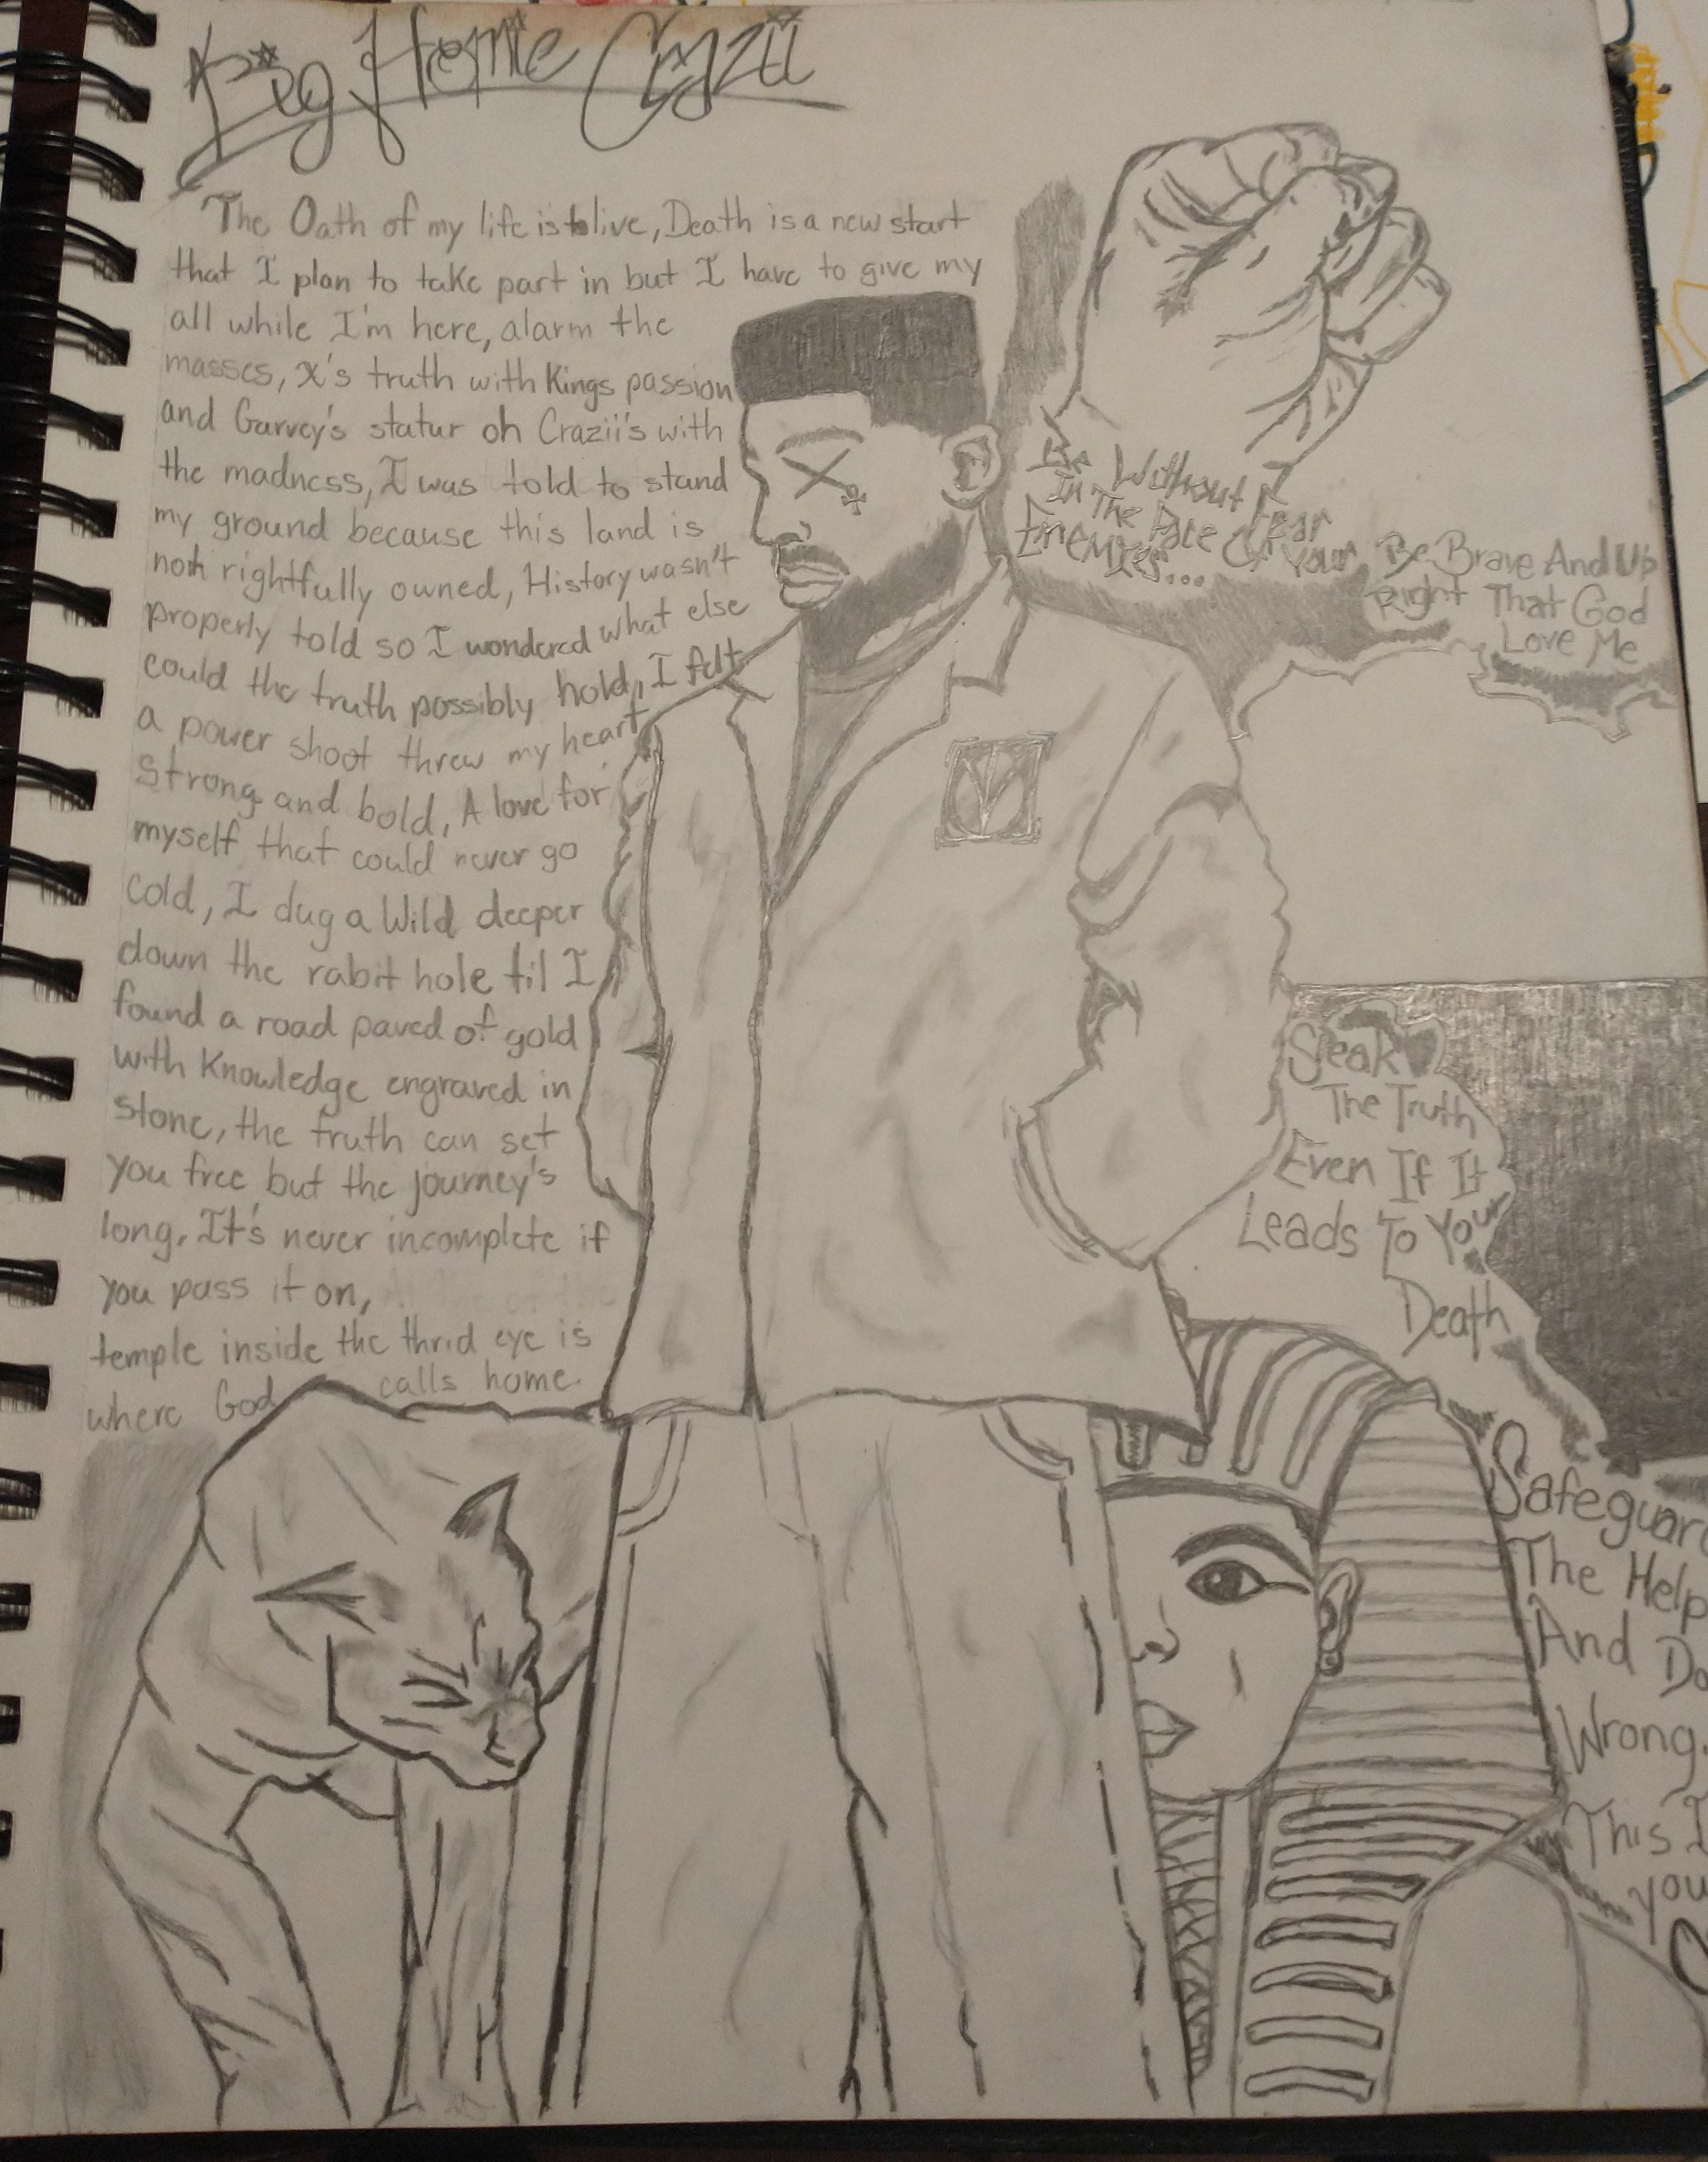 Big Homie Crazii
The Oath of my life is to live, Death is a new start
that I plan to take part in but I have to give my
all while I'm here, alarm the
masses, X's truth with Kings passion
and Garvey's statur oh Crazii's with
the madness, I was told to stand
my ground because this land is
not rightfully owned, History wasn't
properly told so I wondered what else
could the truth possibly hold, I felt
a power shoot threw my heart
strong and bold, A love for
myself that could never go
cold, I dug a Wild deeper
down the rabit hole til I
found a road paved of gold
with Knowledge engraved in
stone, the truth can set
you free but the journey's
long. It's never incomplete if
you pass it on,
temple inside the thrid eye is
where God calls home.
Be Without Fear
In The Face Of Your
Enemies...
Be Brave And Up
Right That God
Love Me
Speak
The Truth
Even If It
Leads To Your
Death
Safeguard
The Help
And Do
Wrong.
This I
you